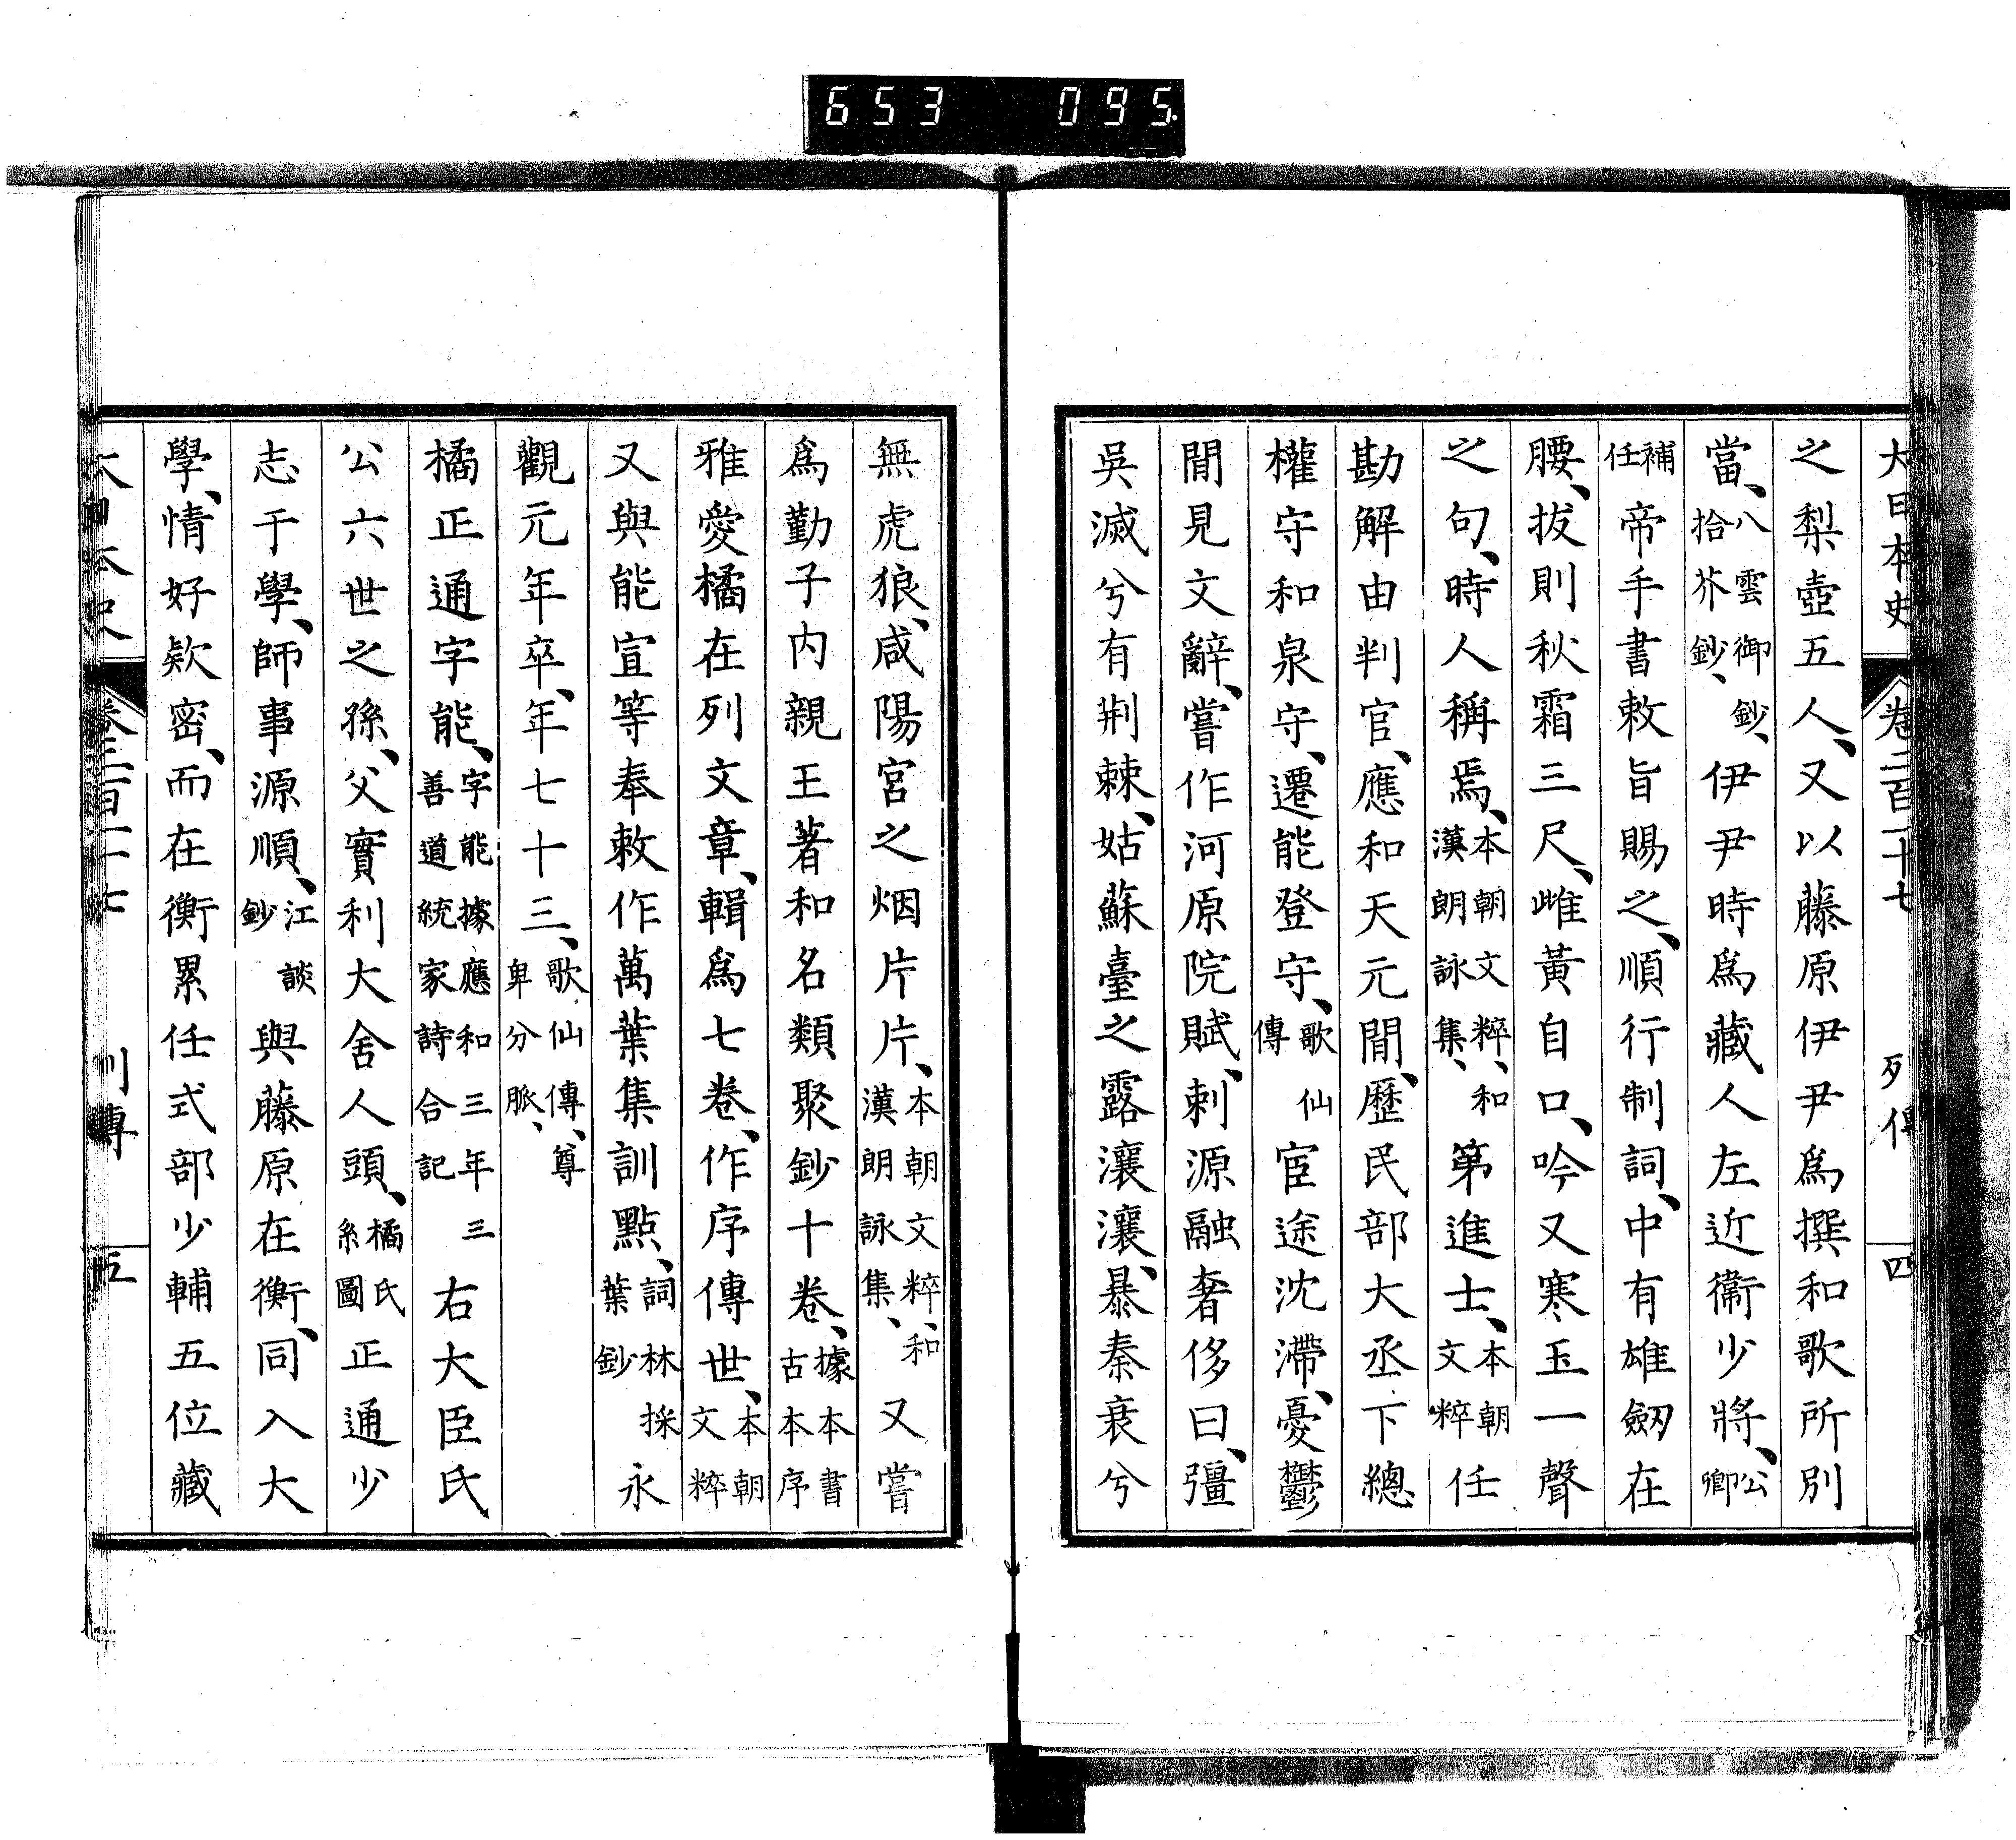 653 095.
大日本史 卷二百一十七 列傳 四
之梨壺五人、又以藤原伊尹爲撰和歌所別
當、八雲御鈔、拾芥鈔、伊尹時爲藏人左近衞少將、公卿
補任帝手書敕旨賜之、順行制詞、中有雄劔在
腰、拔則秋霜三尺、雌黃自口、吟又寒玉一聲
之句、時人稱焉、本朝文粹、和漢朗詠集、第進士、本朝文粹任
勘解由判官、應和天元間、歷民部大丞下總
權守和泉守、遷能登守、歌仙傳宦途沈滯、憂鬱
間見文辭、嘗作河原院賦、刺源融奢侈曰、彊
吳滅兮有荆棘、姑蘇臺之露瀼瀼、暴秦衰兮
無虎狼、咸陽宮之烟片片、本朝文粹、和漢朗詠集、又嘗
爲勤子内親王著和名類聚鈔十卷、據本書古本序
雅愛橘在列文章、輯爲七卷、作序傳世、本朝文粹
又與能宣等奉敕作萬葉集訓點、詞林採葉鈔永
觀元年卒、年七十三、歌仙傳、尊卑分脈、
橘正通字能、字能據應和三年三善道統家詩合記右大臣氏
公六世之孫、父實利大舍人頭、橘氏系圖正通少
志于學、師事源順、江談鈔與藤原在衡、同入大
學、情好欵密、而在衡累任式部少輔五位藏
大日本史 卷二百一十七 列傳 五